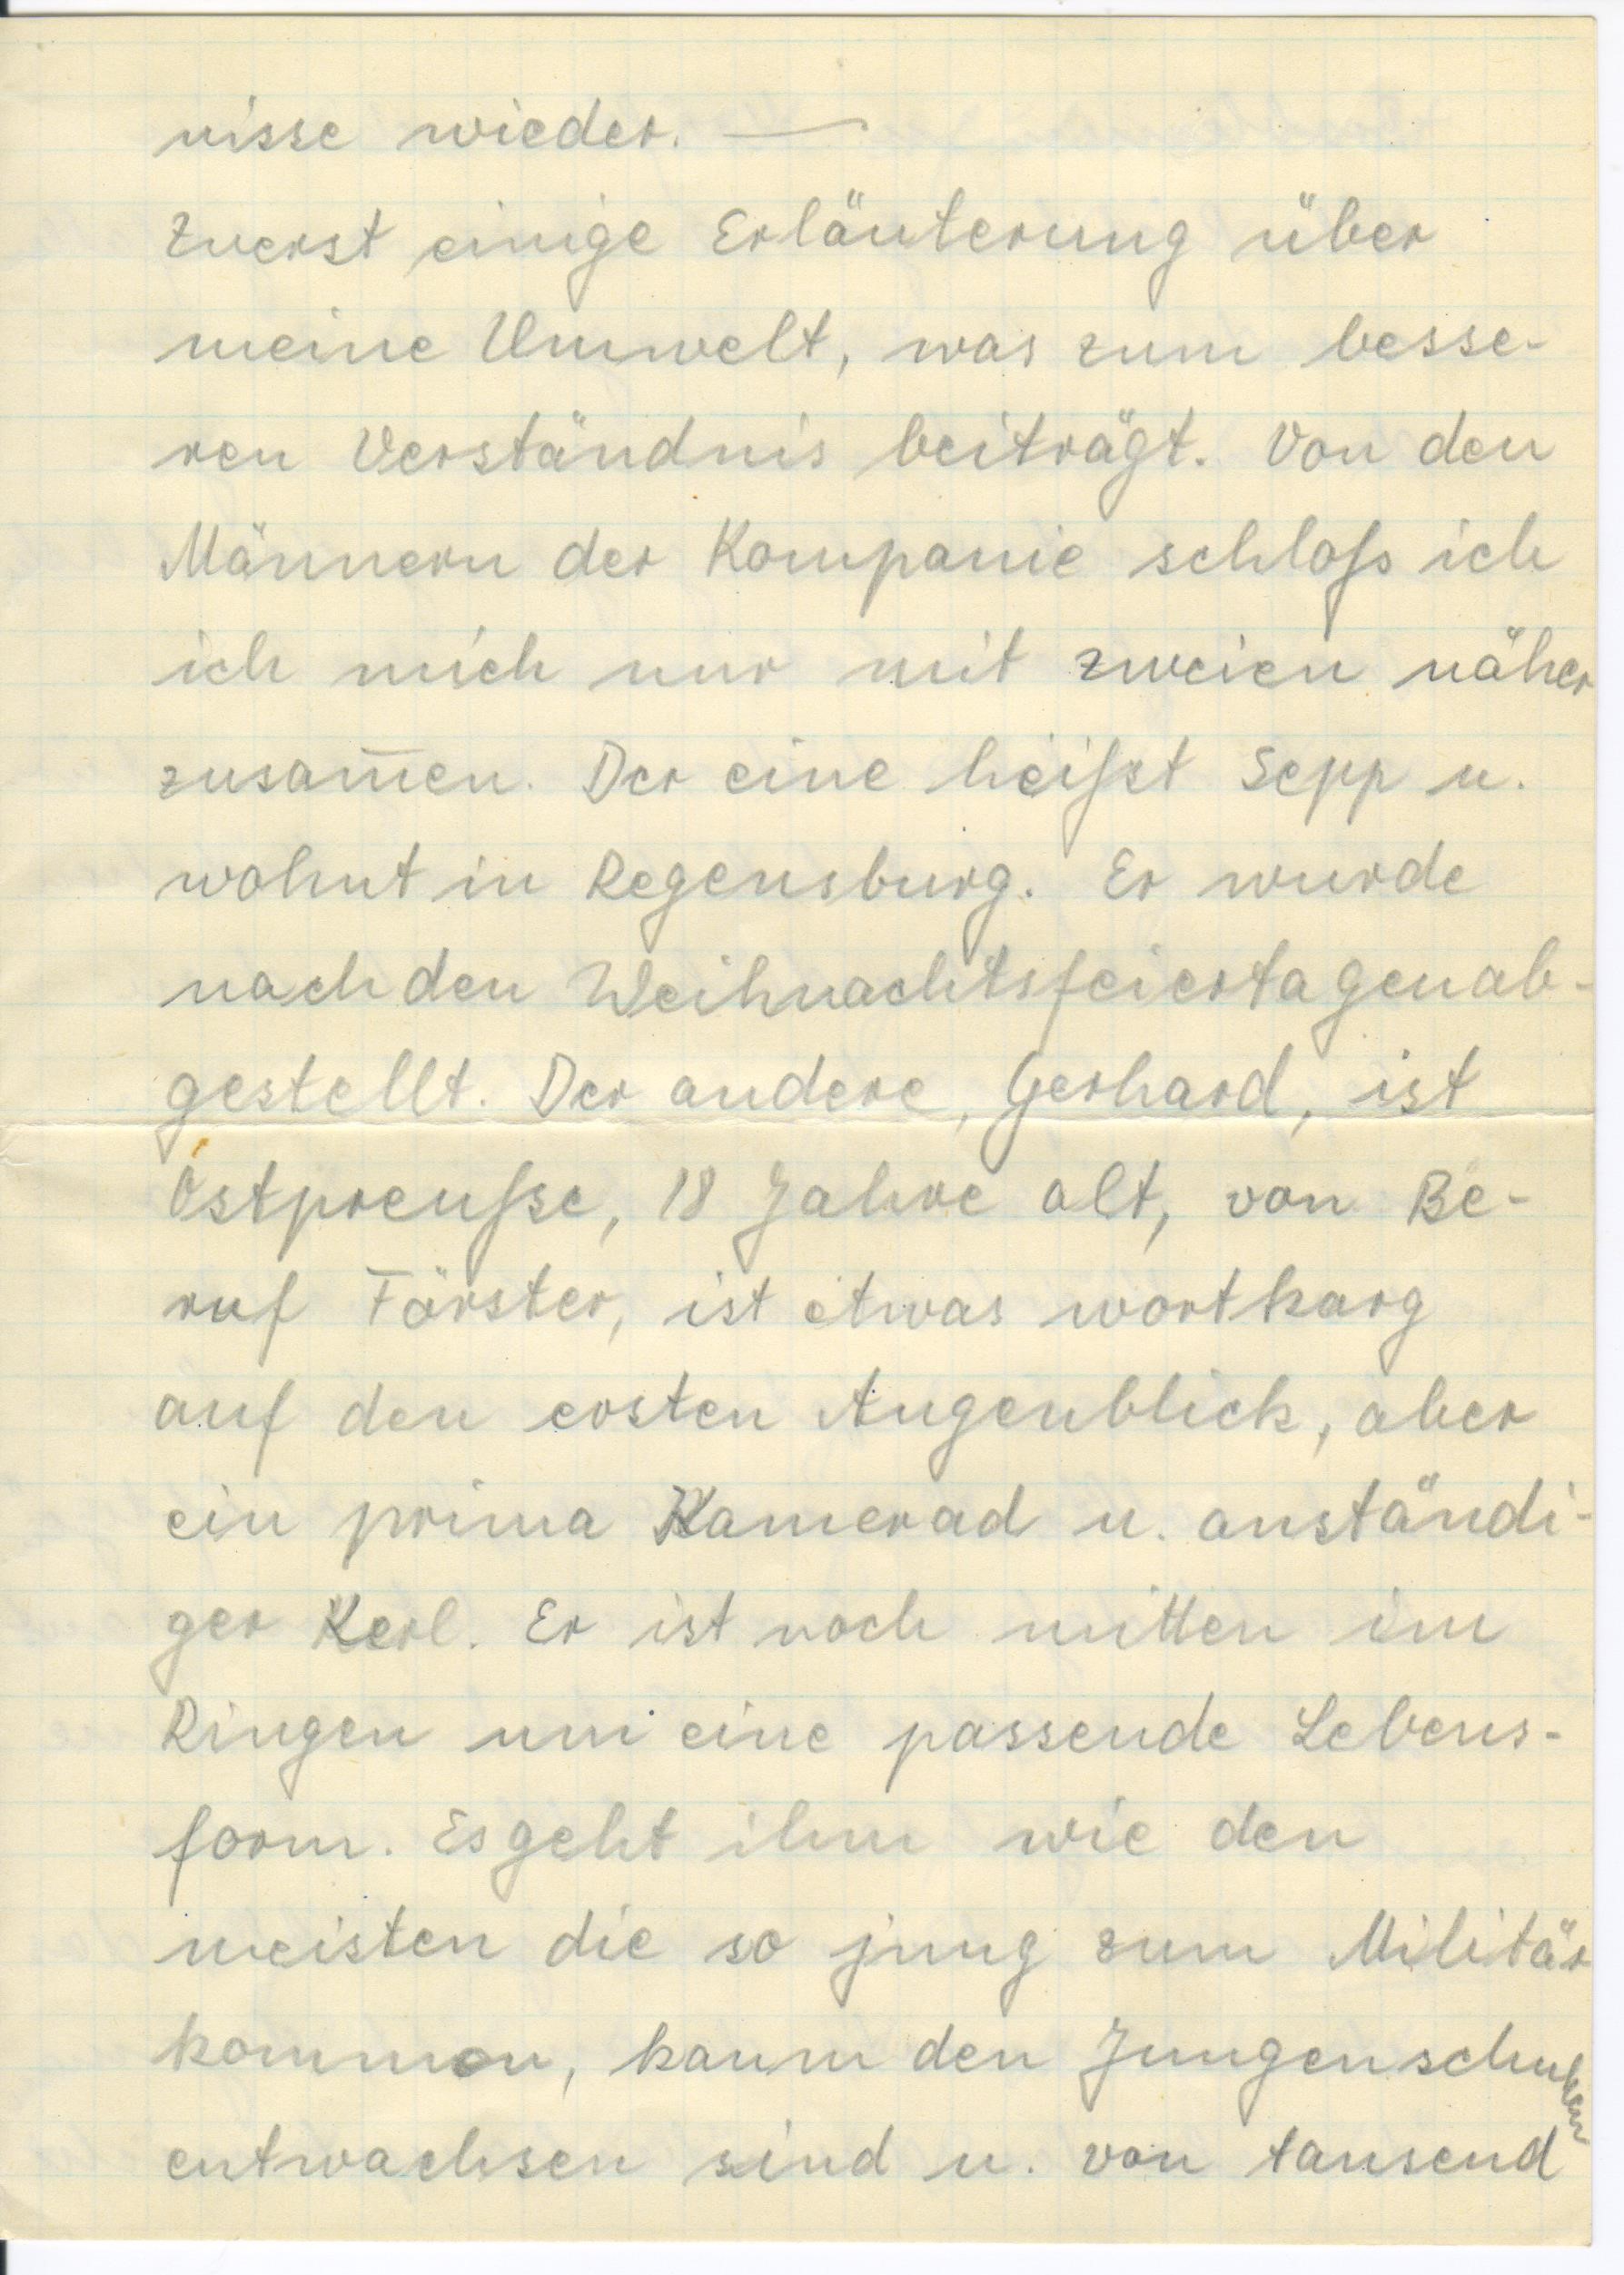 nisse wieder. —
Zuerst einige Erläuterung über
meine Umwelt, was zum besse-
ren Verständnis beiträgt. Von den
Männern der Kompanie schloß ich
ich mich nur mit zweien näher
zusam̅en. Der eine heißt Sepp u.
wohnt in Regensburg. Er wurde
nach den Weihnachtsfeiertagen ab-
gestellt. Der andere, Gerhard, ist
Ostpreuße, 18 Jahre alt, von Be-
ruf Förster, ist etwas wortkarg
auf den ersten Augenblick, aber
ein prima Kamerad u. anständi-
ger Kerl. Er ist noch mitten im
Ringen um eine passende Lebens-
form. Es geht ihm wie den
meisten die so jung zum Militär
kommen, kaum den Jungenschuhen
entwachsen sind u. von tausend